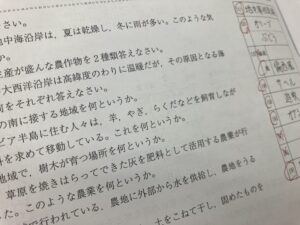 さい。
地中海沿岸は、夏は乾燥し、冬に雨が多い。このような気
か。
生産が盛んな農作物を2種類答えなさい。
大西洋沿岸は高緯度のわりに温暖だが、その原因となる海
何をそれぞれ答えなさい。
の南に接する地域を何というか。
ビア半島に住む人々は、羊、やぎ、らくだなどを飼育しなが
料を求めて移動している。これを何というか。
地域で、樹木が育つ場所を何というか。
、草原を焼きはらってできた灰を肥料として活用する農業が行
た。このような農業を何というか。
で行われている、農地に外部から水を供給し、農地をうる
か。
土をこねて干し、固めたものを
オリーブ
ぶどう
偏西風
サヘル
遊牧